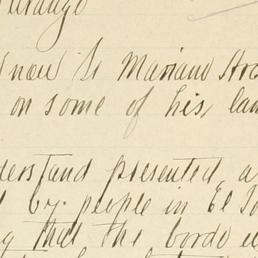 Durango
now Sr Mariano
on some of his
derstand presented a
by people in El
that the bordo